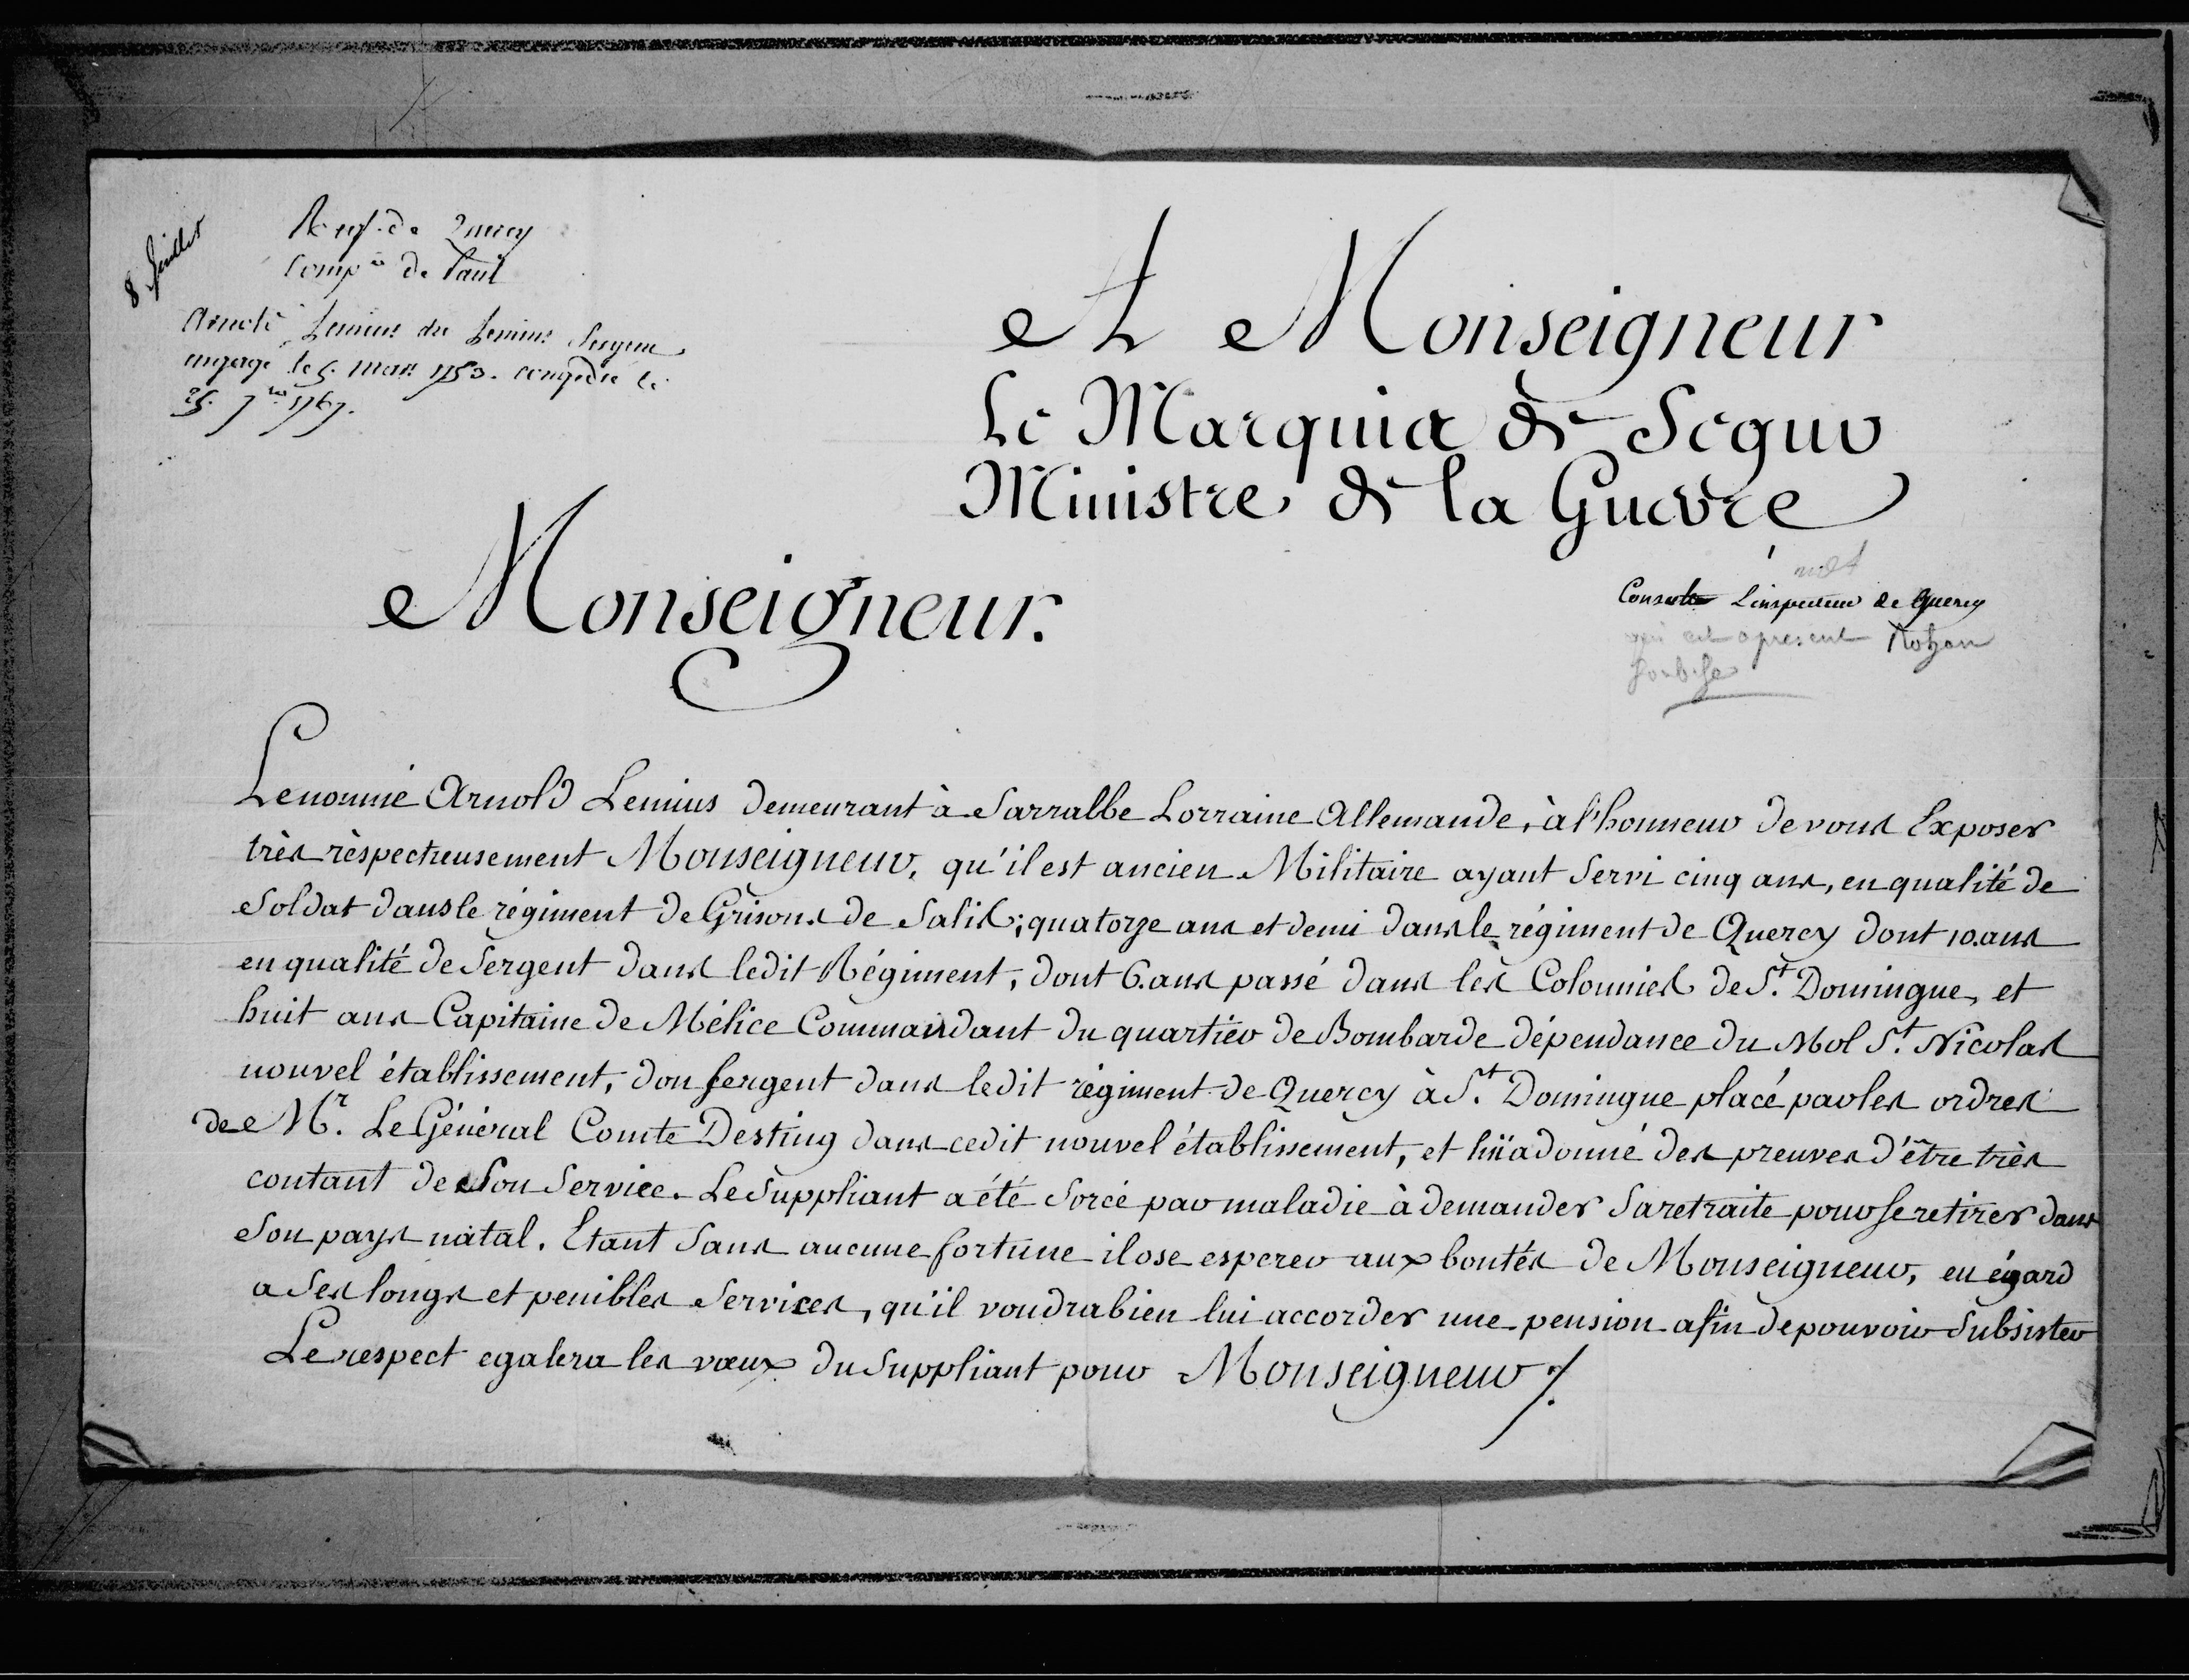 8 Juillet
Reg.t de Quercy
Comp.ie de Paul
Arnold Lemius dit Lemius Sergent
engagé le 5. mars 1753. congédié le
25. 7.bre 1767.
A Monseigneur
Le Marquis de Segur
Ministre de la Guerre
Consulter L'inspecteur de Quercy
qui est apresent Rohan
Soubise
Monseigneur.
Le nommé Arnold Lemius demeurant à Sarralbe Lorraine Allemande, à l'honneur de vous Exposer
très rèspectueusement Monseigneur, qu'il est ancien Militaire ayant Servi cinq ans, en qualité de
Soldat dans le régiment de Grisons de Salis; quatorze ans et demi dans le régiment de Quercy dont 10. ans
en qualité de Sergent dans ledit Régiment, dont 6. ans passé dans lès Colonnies de St. Domingue, et
huit ans Capitaine de Mélice Commandant du quartier de Bombarde dépendance du Mol St. Nicolas
nouvel établissement, don Sergent dans ledit régiment de Quercy à St. Domingue placé par les ordres
de Mr. Le Général Comte Desting dans cedit nouvel établissement, et lui a donné des preuves d'être très
contant de Son Service. Le Suppliant a été forcé par maladie à demander Sa retraite pour se retirer dans
Son pays natal. Etant Sans aucune fortune il ose esperer aux bontés de Monseigneur, eu égard
a Ses longs et penibles Services, qu'il voudra bien lui accorder une pension afin de pouvoir Subsister
Le respect egalera les vœux du Suppliant pour Monseigneur ./.